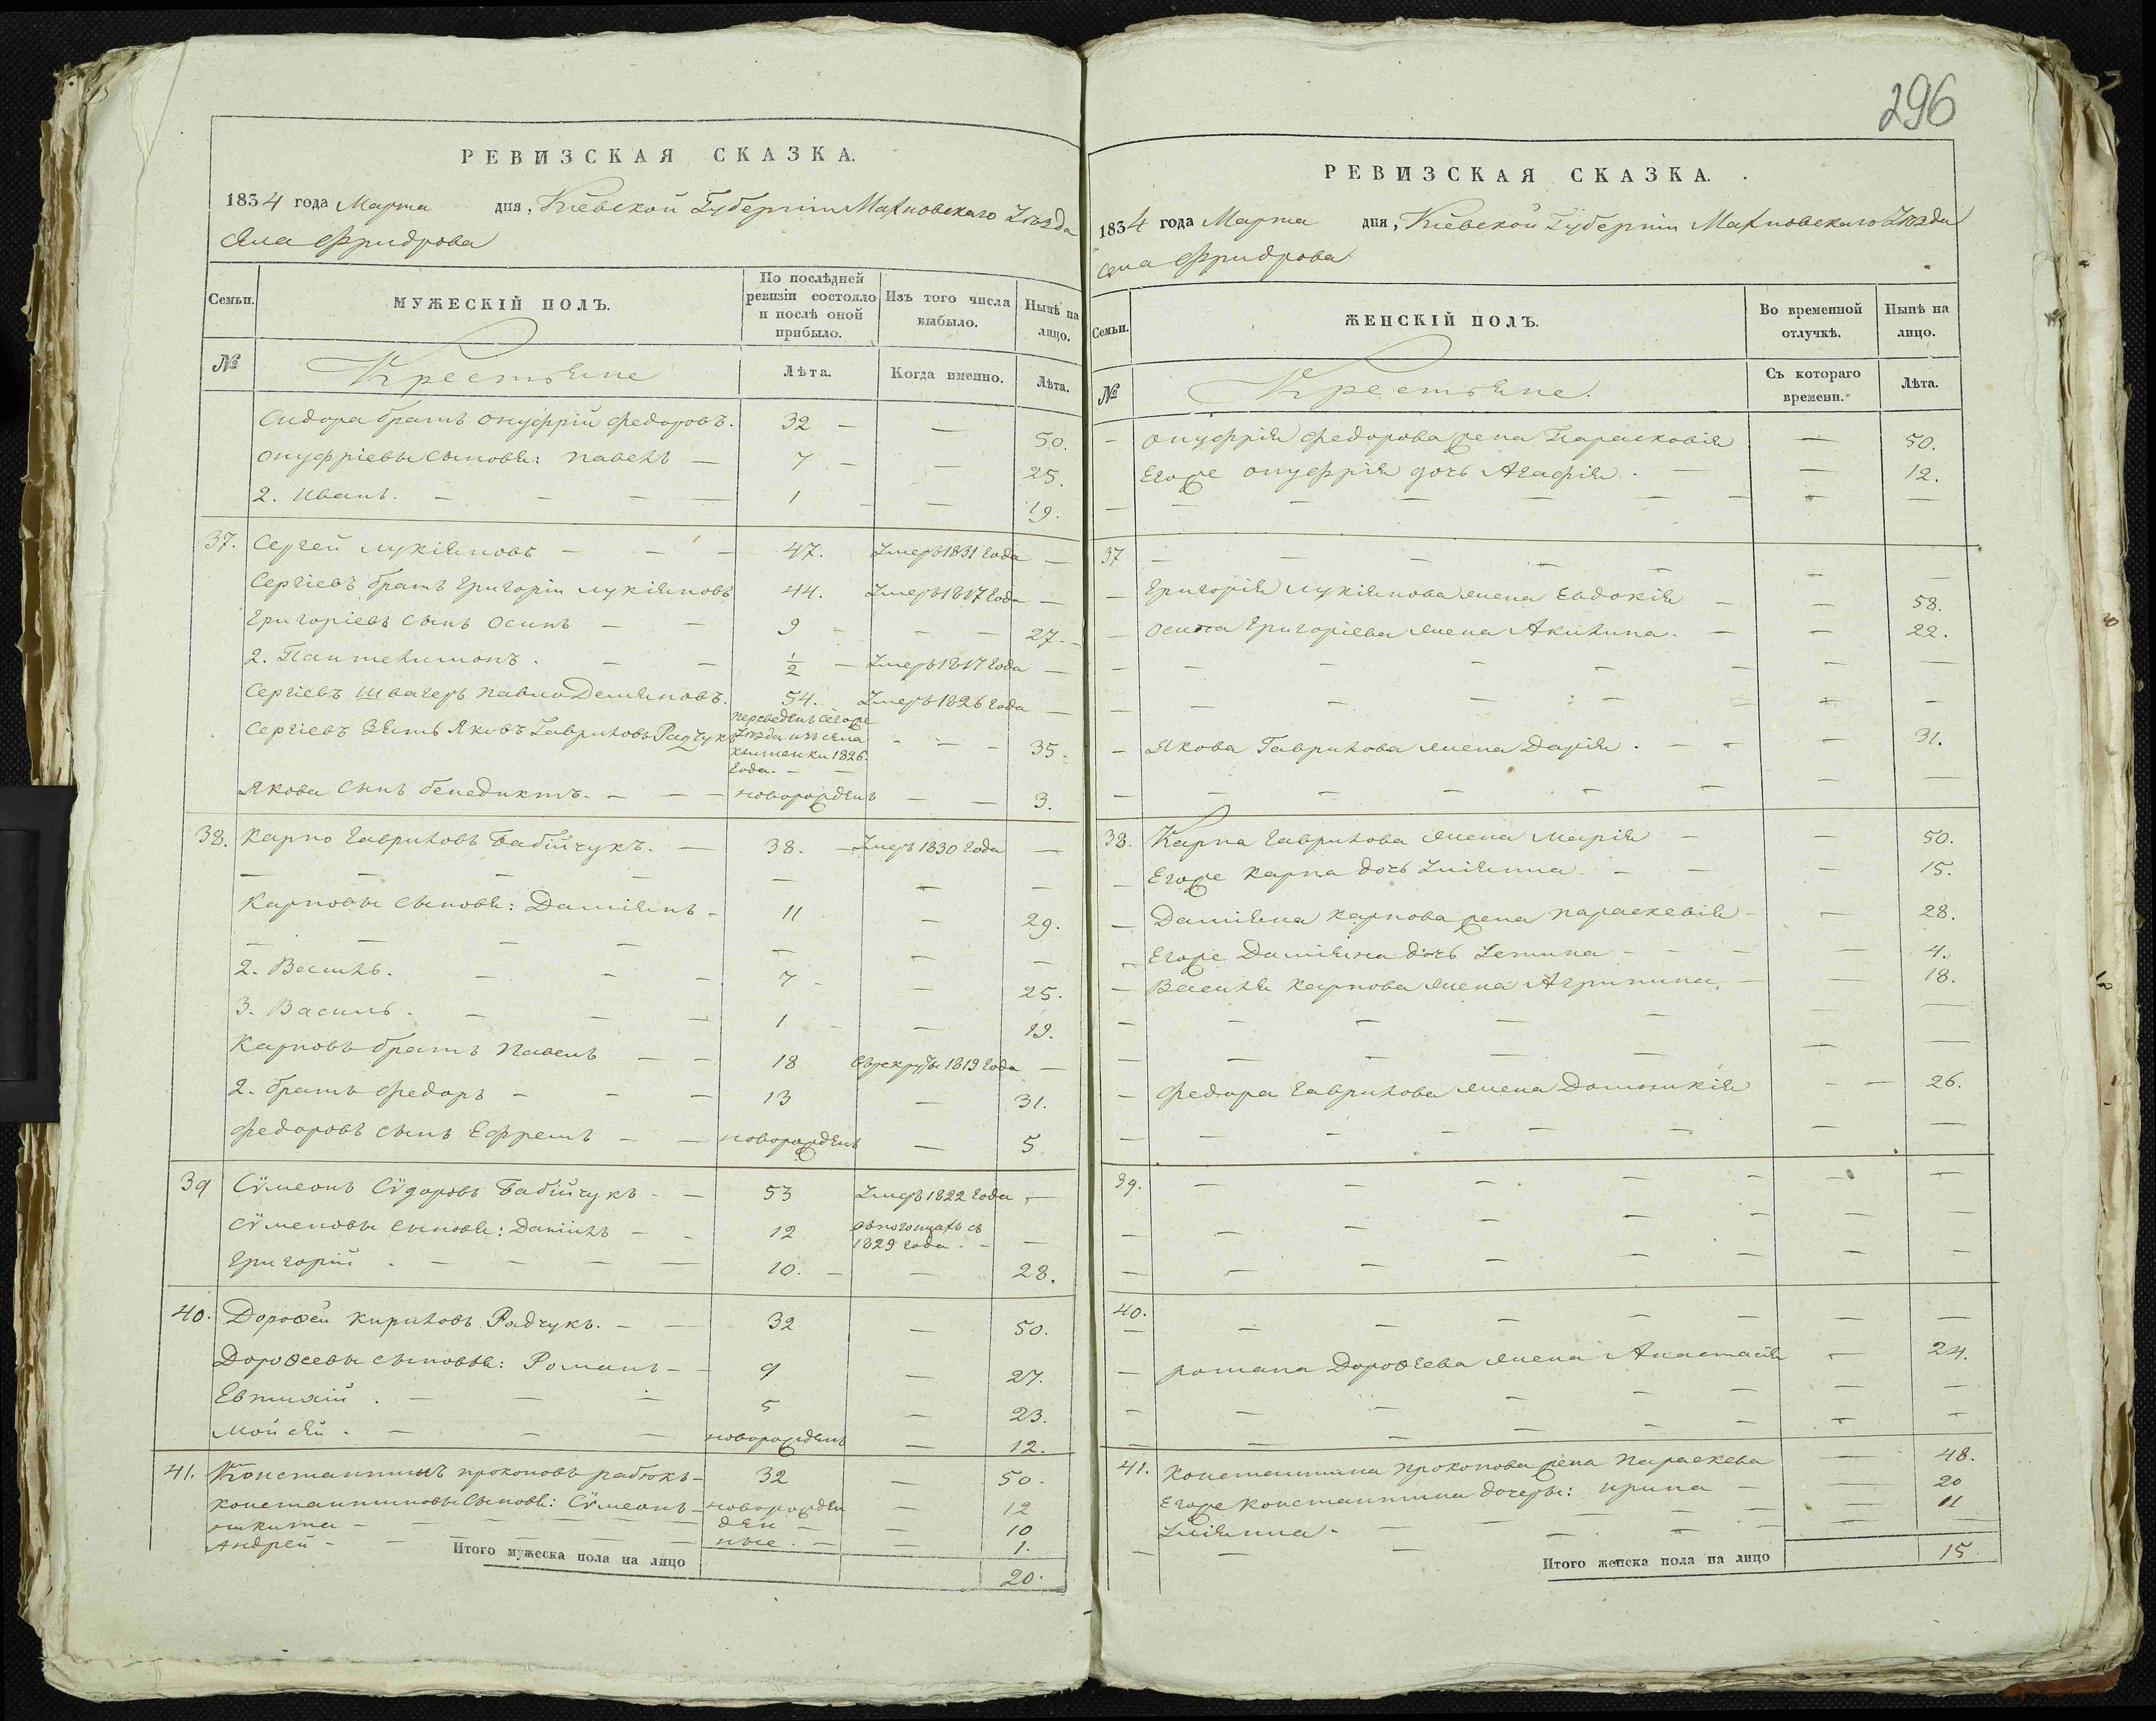 296
РЕВИЗСКАЯ СКАЗКА.
1834 года Марта дня, Кіевской Губерніи Махновскаго Уѣзда
села Фридрова
Семьи. МУЖЕСКІЙ ПОЛЪ. По послѣдней ревизіи состояло и послѣ оной прибыло. Изъ того числа выбыло. Нынѣ на лицо.
№ Крестьяне Лѣта. Когда именно. Лѣта.
Сидора братъ Онуфрій Федоровъ. 32 — — 50.
Онуфріевы сыновья: Павелъ — 7 — — 25.
2. Иванъ. — — — — 1 — 19.
37. Сергей Лукіяновъ — — — 47. Умеръ 1831 года —
Сергіевъ братъ Григорій Лукіяновъ 44. Умеръ 1817 года —
Григоріевъ сынъ Осипъ — — 9 — — — 27. —
2. Пантелимонъ. — — ½ — Умеръ 1817 года —
Сергіевъ швагеръ Павло Демяновъ. 54. Умеръ 1826 года —
Сергіевъ зять Яковъ Гавриловъ Радчукъ переведенъ сегоже
Уѣзда изъ села
1826.
года. — — — — — 35.
Якова сынъ Бенедиктъ. — — — новорожденъ — — 3.
38. Карпо Гавриловъ Бабійчукъ. — 38. — Умеръ 1830 года —
— — — — — — —
Карповы сыновья: Даміянъ — 11 — 29.
— — — — — — —
2. Василь. — — — 7 — — 25.
3. Василь. — — — 1 — — 19.
Карповъ братъ Павелъ — — 18 Въ рекруты 1819 года —
2. братъ Федоръ — — — 13 — 31.
Федоровъ сынъ Ефремъ — — новорожденъ — 5
39 Сѵмеонъ Сѵдоровъ Бабійчукъ — — 53 Умеръ 1822 года —
Сѵменовы сыновья: Даніилъ — — 12 съ
1829 года. — —
Григорій. — — — — 10. — — 28.
40. Дорофей Кириловъ Радчукъ. — — 32 — 50.
Дорофеевы сыновья: Романъ — — 9 — 27.
Евтихій. — — — 5 — 23.
Мойсей. — — — новорожденъ — 12.
41. Константинъ Прокоповъ Рабюкъ — 32 — 50.
Константиновы сыновья: Сѵмеонъ — новорожден — 12
Никита — — — — — ден — — 10
Андрей — — — ные. — — 1.
Итого мужеска пола на лицо 20.
РЕВИЗСКАЯ СКАЗКА.
1834 года Марта дня, Кіевской Губерніи Махновскаго Уѣзда
села Фридрова
Семьи. ЖЕНСКІЙ ПОЛЪ. Во временной отлучкѣ. Нынѣ на лицо.
№ Крестьяне. Съ котораго времени. Лѣта.
— Онуфрія Федорова жена Парасковія — 50.
Егоже Онуфрія дочь Агафія. — — 12.
— — — — — — — — —
37 — — — — — — —
— Григорія Лукіянова жена Евдокія — — 58.
— Осипа Григоріева жена Акилина. — — 22.
— — — — — — — —
— — — — — — — —
— Якова Гаврилова жена Дарія. — — — 31.
— — — — — — — —
38. Карпа Гаврилова жена Марія — — 50.
— Егоже Карпа дочь Уліянна — — — 15.
— Даміяна Карпова жена Параскевія — — 28.
— Егоже Даміяна дочь — — — 4.
— Василя Карпова жена Агрипина — — 18.
— — — — — — —
— — — — — — —
— Федора Гаврилова жена Домникія — — 26.
— — — — — — — —
39. — — — — — — —
— — — — — — —
— — — — — — —
40. — — — — — — —
— Романа Дорофеева жена Анастасія — 24.
— — — — — — —
— — — — — — —
41. Константина Прокопова жена Параскева — 48.
Егоже Константина дочеры: Ирина — — 20
Уліянна. — — — — — 11
— — — — — —
Итого женска пола на лицо 15.